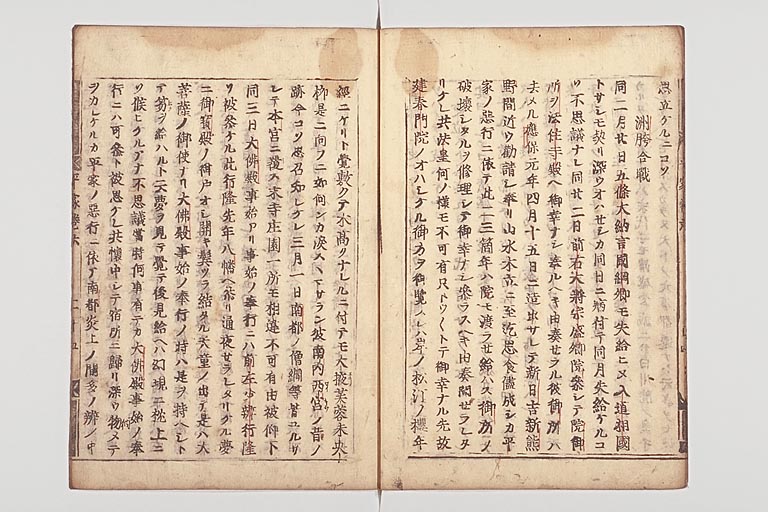 思立ケルニコソ
洲胯合戦
同二月廿日五條大納言國綱卿モ失給ヒヌ入道相國
トサシモ契リ深ウオハセシカ同日ニ病付テ同月失給ケルコソ
不思議ナレ同廿二日前右大将宗盛卿院参シテ院御
所ヲ法住寺殿ヘ御幸ナシ奉ルヘキ由奏セラル彼御所ハ
去メル應保元年四月十五日ニ造出サレテ新日吉新熊
野間近ウ勧請シ奉リ山水木立ニ至迄思食儘成シカ平
家ノ悪行ニ依テ此二三箇年ハ院モ渡ラせ給ハス御所ノ
破壊シタルヲ修理シテ御幸ナシ参ラスヘキ由奏聞せラレタ
リケレ共法皇何ノ様モ不可有只トウ〱トテ御幸ナル先故
建春門院ノオハシケル御方ヲ御覧スレハ岸ノ松汀ノ櫻年
経ニケリト覚敷テ木高クナレルニ付テモ大掖芙蓉未央
柳是ニ向フニ如何シカ涙
南内西宮ノ昔ノ
跡今コソ思召知レケレ三月一日南都ノ僧綱等
シテ本官ニ覆ス末寺庄園一所モ相違不可有由被仰下
同三日大佛殿事始アリ事始ノ奉行ニハ前左少辨行隆
ソ被参ケル此行隆先年八幡ヘ参リ通夜せラレタリケル夢
ニ御寳殿ノ御戸オシ開キ鬢ツラ結タル天童ノ出テ是ハ大
菩薩ノ御使ナリ大佛殿事始ノ奉行ノ時ハ是ヲ持ヘシト
テ笏ヲ給ハルト云夢ヲ見テ覚テ後見給ヘハ幻現ニ枕上ニ
ソ候ヒケルアナ不思議當時何事有テカ大佛殿事始ノ奉
行ニハ可参ト被思ケレ共懐中シテ宿所ニ歸リ深ウ物メテ
ヲカレケルカ平家ノ悪行ニ依テ南都炎上ノ間多ノ辨ノ中